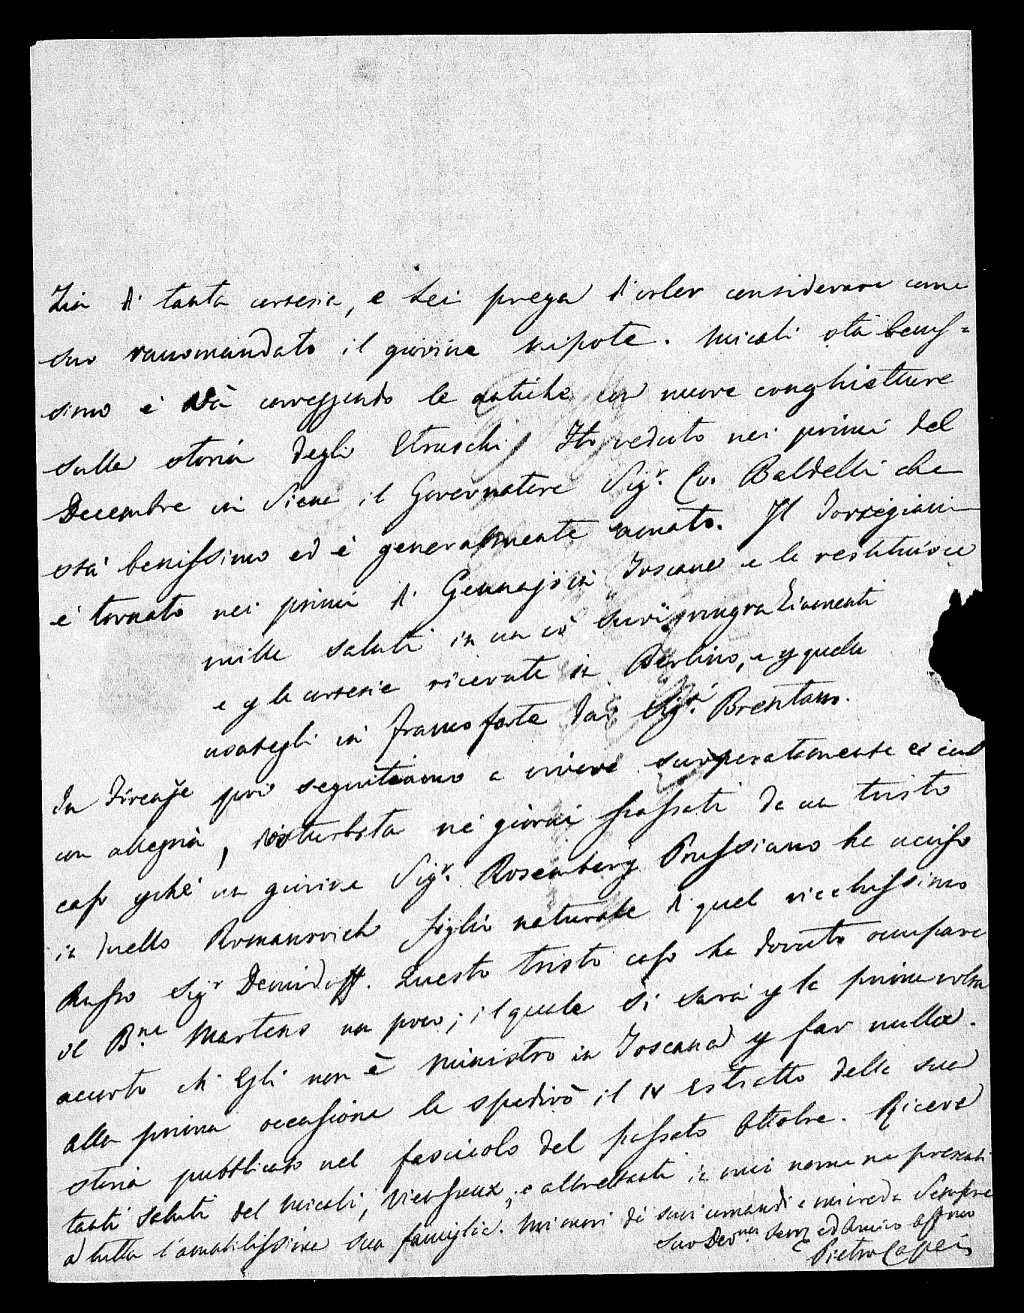 Zia di tanta cortesia, e Lei prega a voler considerare come
suo raccomandato il giovine nipote. Micali sta benis=
simo e và correggendo le antiche con nuove conghietture
sulla storia degli Etruschi. Ho veduto nei primi del
Decembre in Siena il Governatore Sigr. Cv. Baldelli che
stà benissimo ed è generalmente amato. Il Torrigiani
è tornato nei primi di Gennajo in Toscana e le restituisce
mille saluti in un co' suoi ringraziamenti
e p le cortesie ricevute in Berlino, e p quelle
usategli in Francoforte dai Sigri Brentano.
In Firenze poi seguitiamo a vivere con
allegria, disturbata nei giorni passati da un tristo
caso pchè un giovine Sigr. Rosemberg Prussiano ha ucciso
in duello Romanovich figlio naturale di quel ricchissimo
Russo Sigr Demidoff. Questo tristo caso ha dovuto occupare
il Bne Martens un poco; il quale si sarà p la prima volta
accorto ch' Egli non è Ministro in Toscana p far nulla.
Alla prima occasione le spedirò il estratto della sua
storia pubblicato nel fascicolo del passato Ottobre. Riceva
tanti saluti del Micali, Vieusseux, e altrettanti in mio nome ne presenti
a tutta l'amabilissima sua famiglia. Mi onori dei suoi comandi e mi creda Sempre
Suo Devmo Serv. ed Amico affmo
Pietro Capei